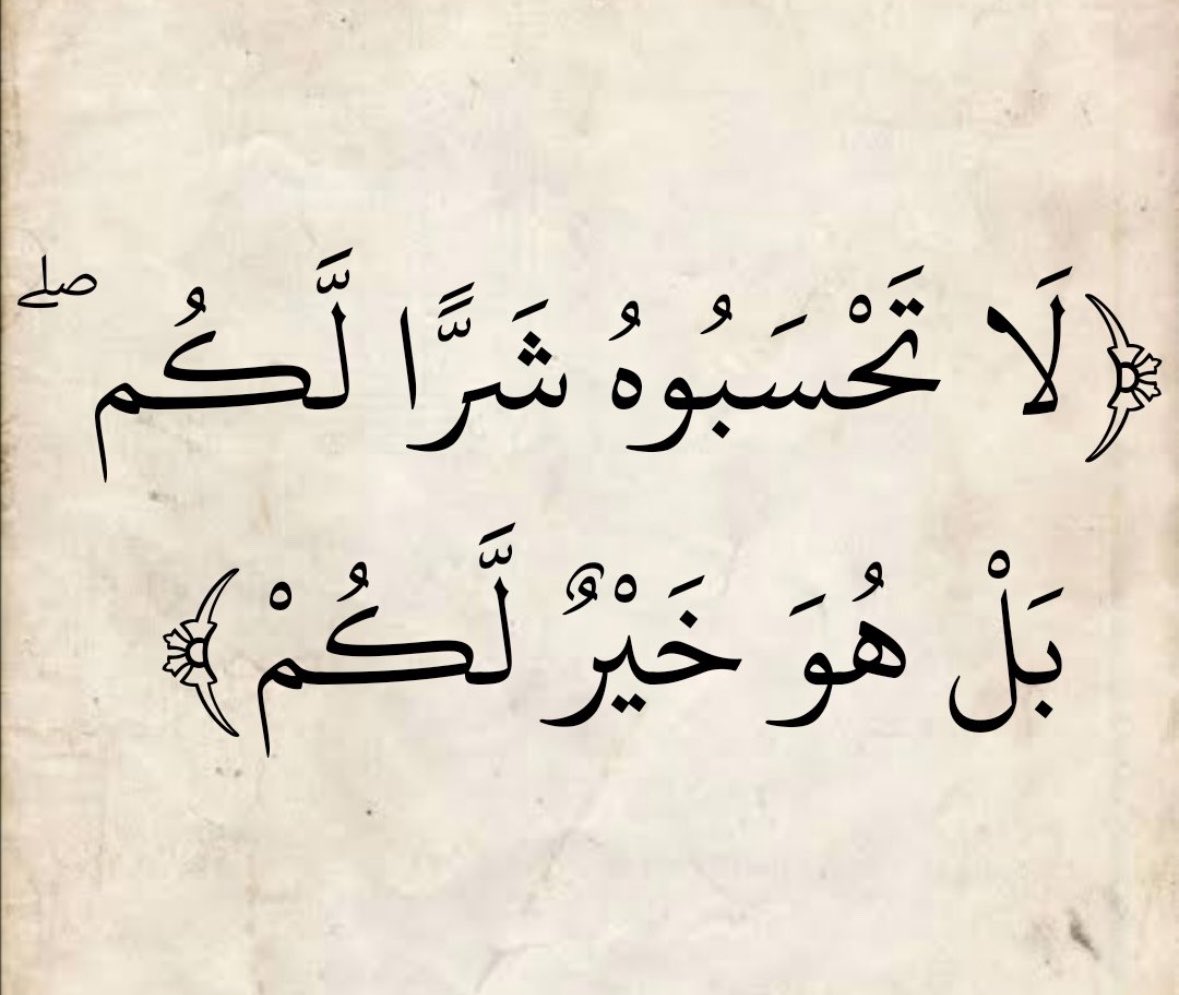 ﴿لَا تَحْسَبُوهُ شَرًّا لَّكُم ۖ
بَلْ هُوَ خَيْرٌ لَّكُمْ﴾